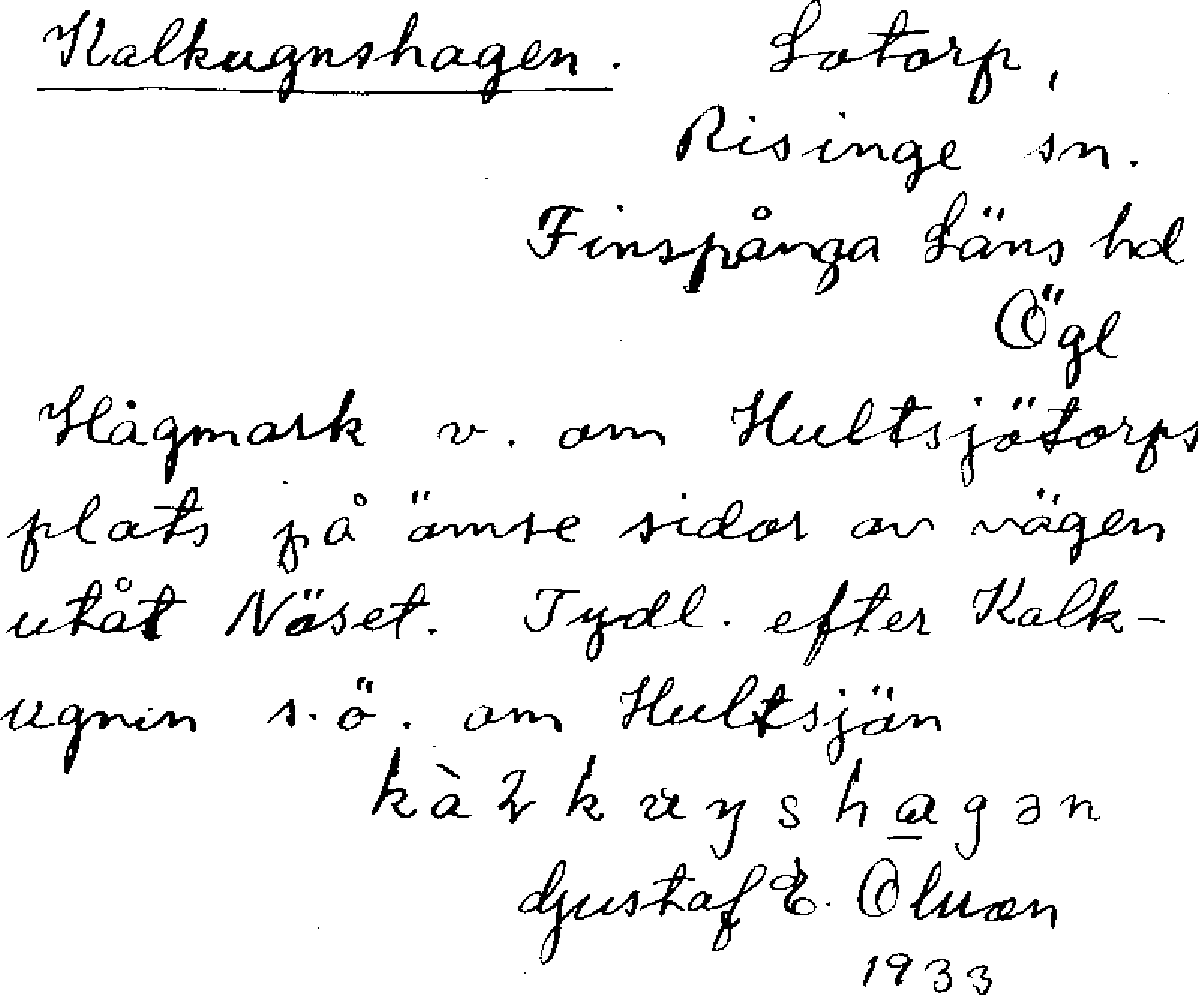 Kalkugnshagen. Lotorp,
Risinge sn.
Finspånga Läns hd
Ögl
Hågmark v. om Hultsjötorps
plats på ömse sidor av vägen
utåt Näset. Tydl. efter Kalk-
ugnen s.ö. om Hultsjön
Gustaf E. Olsson
1933